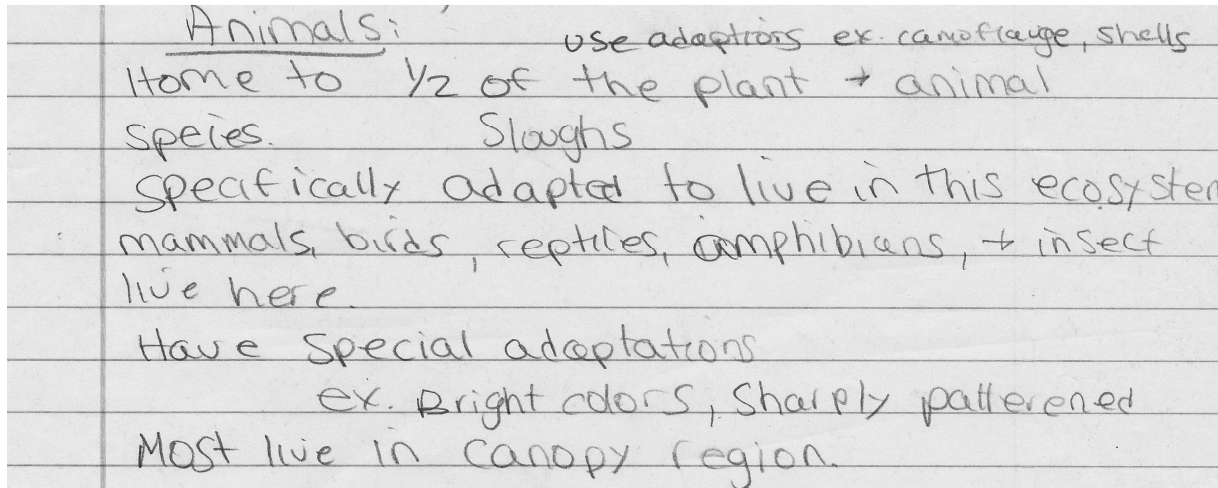 Animals: use adaptions ex. camoflauge, shells
Home to 1/2 of the plant + animal
speies. Sloughs
specifically adapted to live in this ecosystem
mammals, birds, reptiles, amphibians, + insect
live here.
Have special adaptations
ex. Bright colors, sharply patterened
Most live in canopy region.